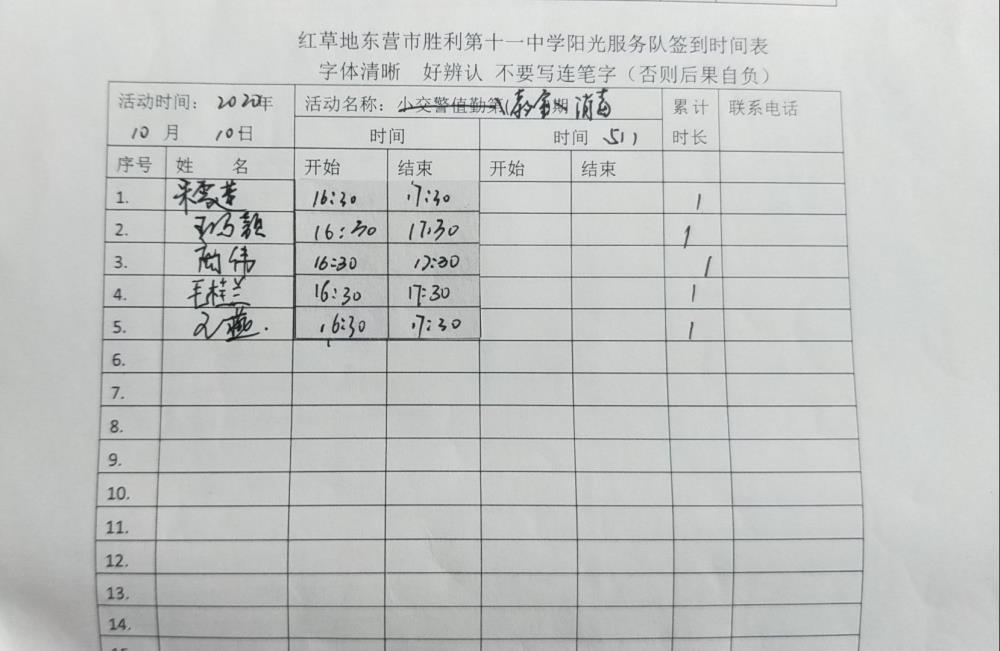 红草地东营市胜利第十一中学阳光服务队签到时间表
字体清晰 好辨认 不要写连笔字（否则后果自负）
活动时间： 2020年 活动名称： 小交警值勤第（教室期 消毒 累计 联系电话
10 月 10日 时间 时间 511 时长
序号 姓 名 开始 结束 开始 结束
1. 宋雪莲 16:30 17:30 1
2. 16:30 17:30 1
3. 陶伟 16:30 17:30 1
4. 毛桂兰 16:30 17:30 1
5. 燕 16:30 17:30 1
6.
7.
8.
9.
10.
11.
12.
13.
14.